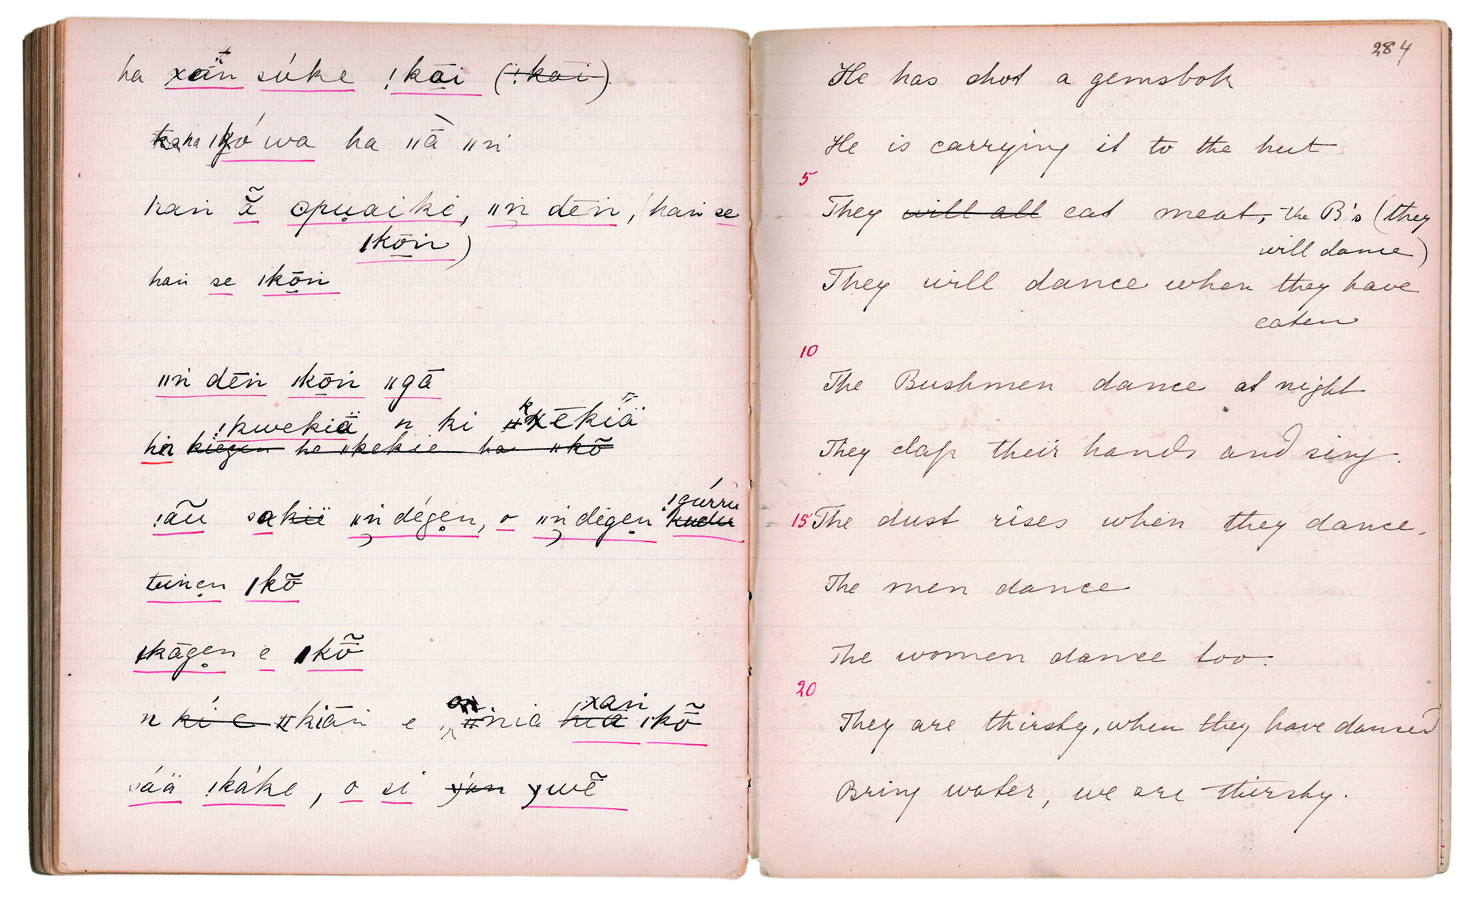 ha xān súke !kāi (!kai).
ha ǀkó wa ha ǁā ǁṅ
han ã ʘpu̱aiki, ǁn̄ dēn, (han se
ǀkōṅ)
han se ǀkōṅ
ǁṅ dēṅ ǀkōṅ ǁgā
!kwekiä n ki ǂxēkiä
hiṅ kiegen he ǀkekie ha ǁkõ
!ãũ sakiï ǁn̄ dégen, o ǁn̄ dégen !gúrru
kudu
tuinen ǀkõ
ǀkāgen e ǀkõ
n ki e ǂkiāṅ e ǂnia hia xaṅ ǀkõ
sáä !káke, o si ywẽ
284
He has shot a gemsbok
He is carrying it to the hut
5
They will all eat meat, the B's (they
will dance)
They will dance when they have
eaten
10
The Bushmen dance at night
They clap their hands and sing.
15 The dust rises when they dance.
The men dance
The women dance too.
20
They are thirsty, when they have danced
Bring water, we are thirsty.